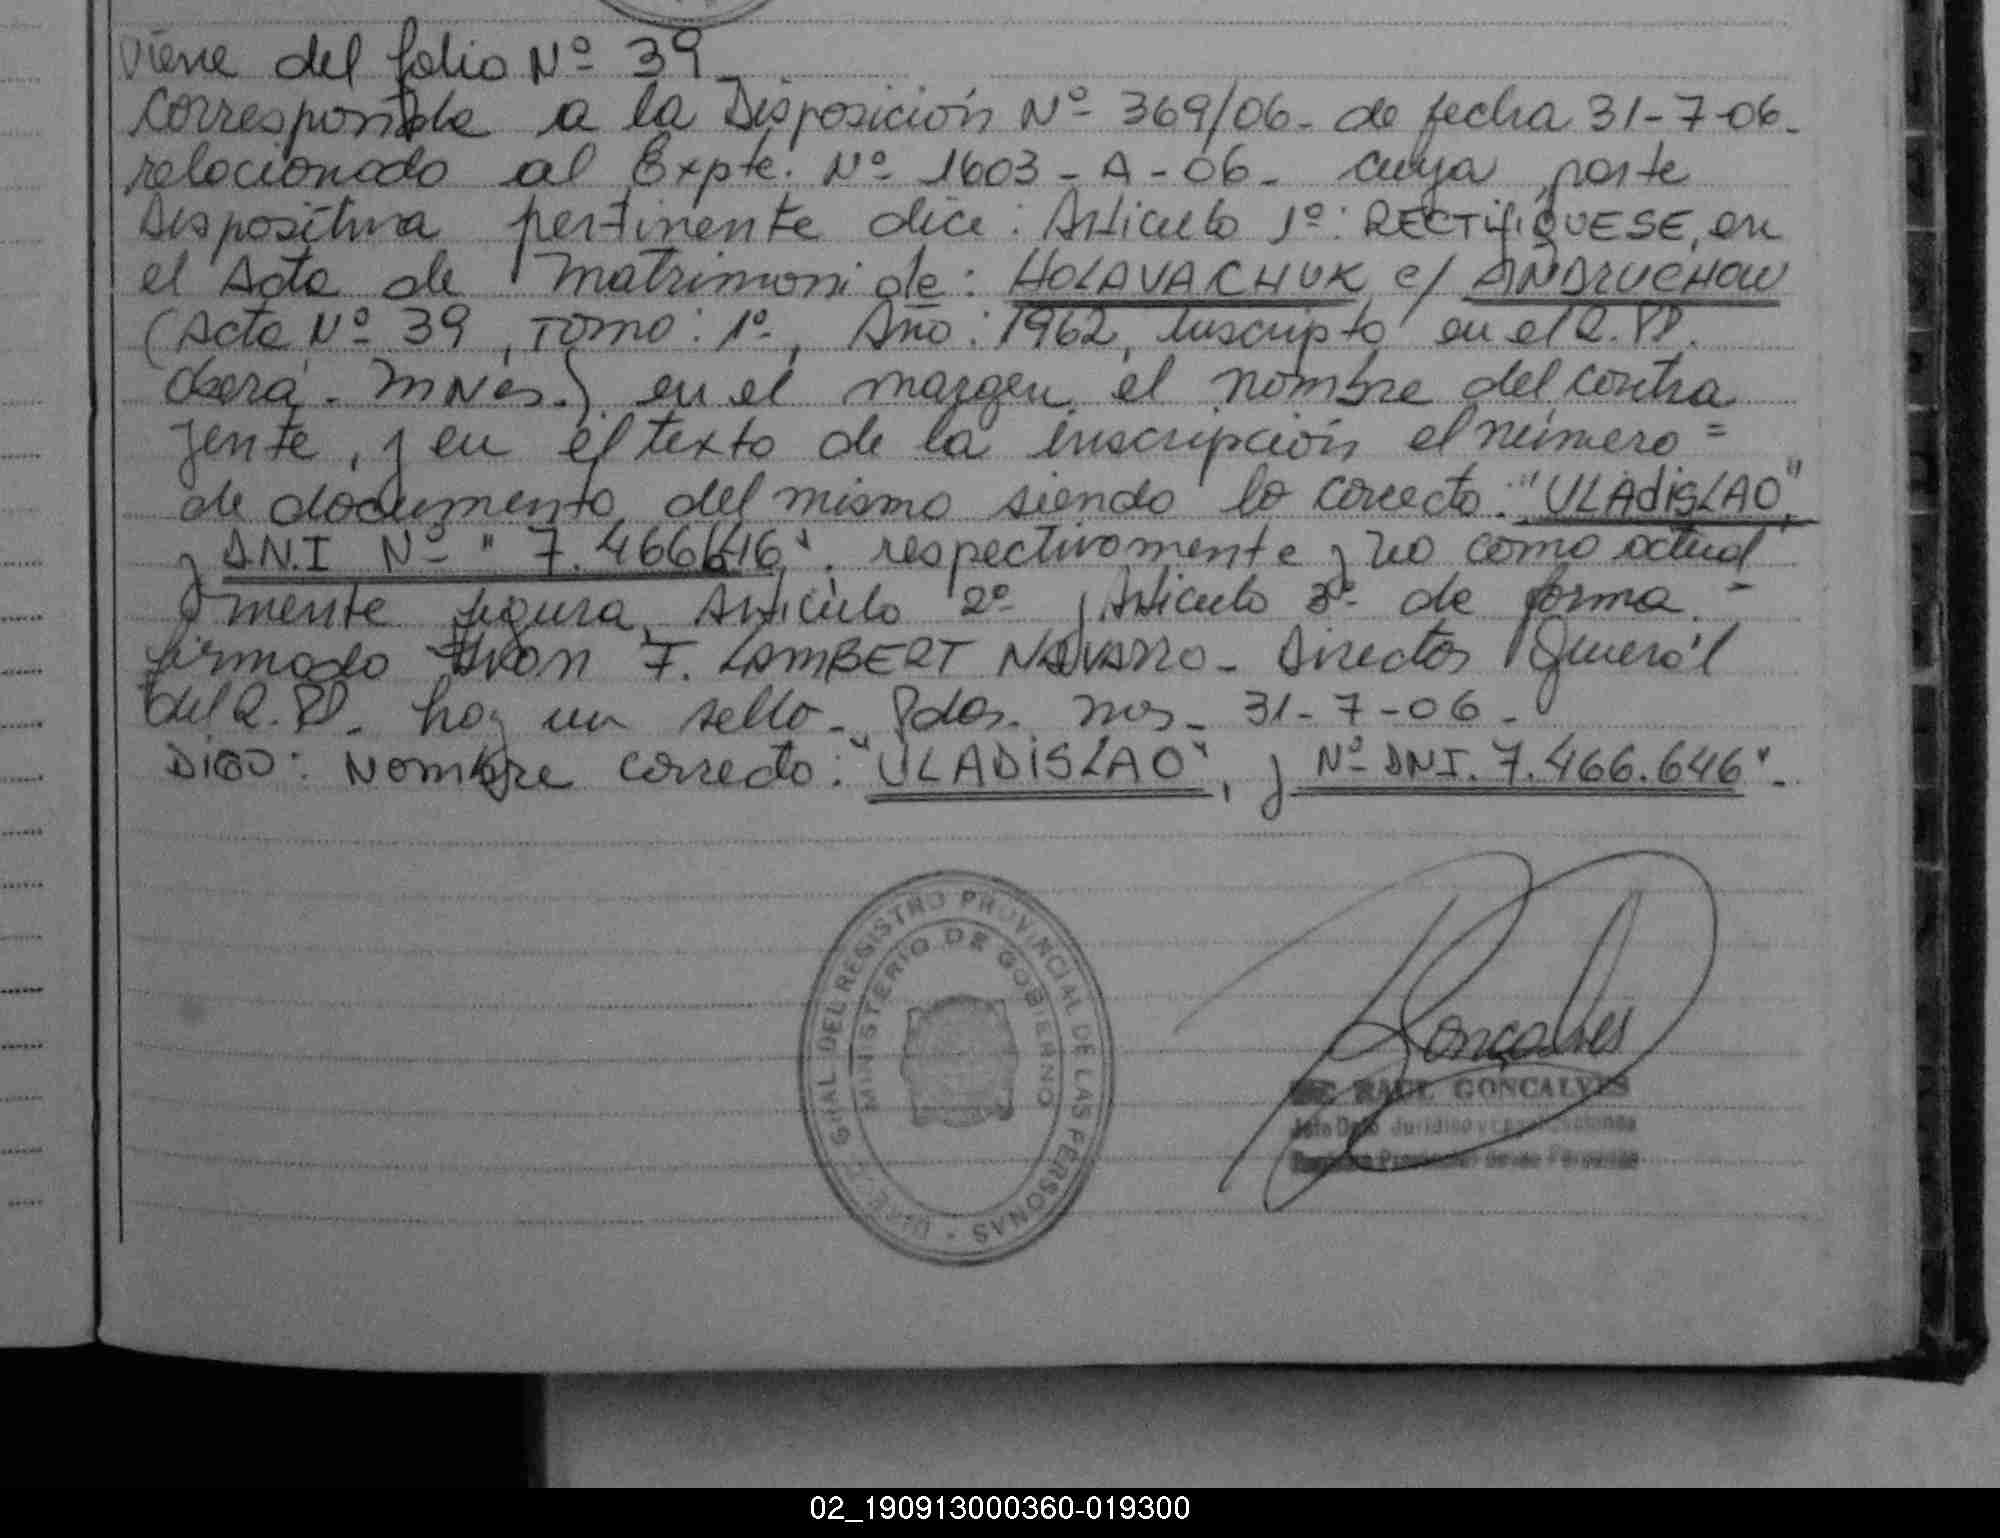 Viene del folio Nº 39
Corresponde a la Disposición Nº 369/06 - de fecha 31-7-06 -
relacionado al Expte. Nº 1603 - A - 06 - cuya parte
Dispositiva pertinente dice: Artículo 1º: RECTIFIQUESE, en
el Acta de Matrimoni de: HOLAVACHUK c/ ANDRUCHOW
(Acta Nº 39, TOMO: 1º, Año: 1962, Inscripto en el R.PP.
Oberá - MNES.) en el margen el nombre del contra
yente, y en el texto de la inscripción el número =
de documento del mismo siendo lo correcto: "ULADISLAO",
y D.N.I Nº " 7.466646". respectivamente y no como actual
mente figura. Artículo 2º y Artículo 3º de forma -
firmado F. LAMBERT NAVARRO - Director General
del R.PP. hay un sello - Pdas. Mnes - 31-7-06 -
DIGO: Nombre correcto: "ULADISLAO", y Nº DNI. 7.466.646" -
DIREC. GRAL. DEL REGISTRO PROVINCIAL DE LAS PERSONAS -
MINISTERIO DE GOBIERNO
Gonçalves
RAUL GONCALVES
Jefe Dpto Jurídico y
Registro Provincial de las Personas
02_190913000360-019300